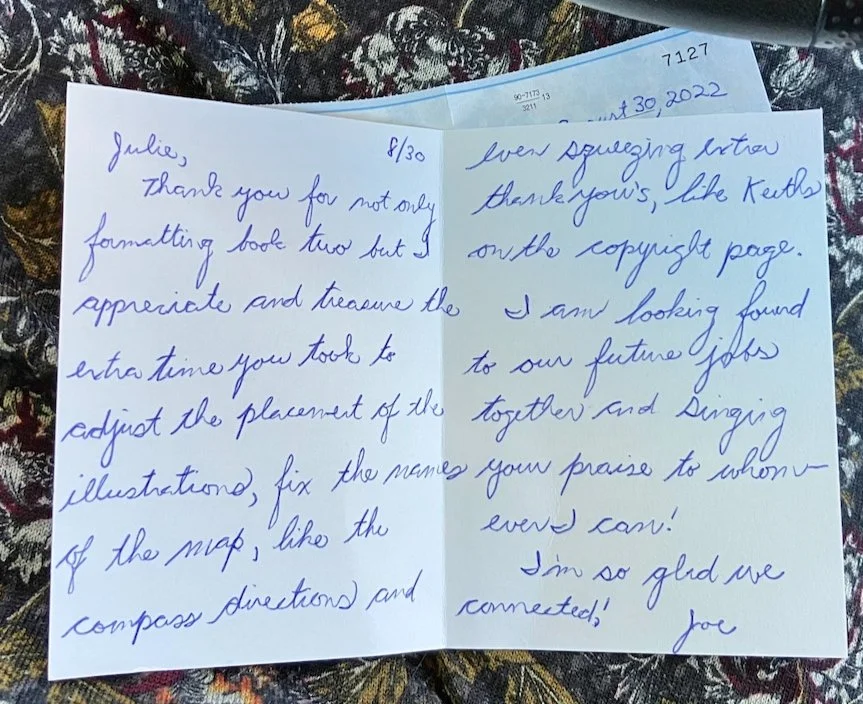 7127
90-7173 13
3211
August 30, 2022
Julie, 8/30
Thank you for not only
formatting book two but I
appreciate and treasure the
extra time you took to
adjust the placement of the
illustrations, fix the names
of the map, like the
compass directions and
even squeezing extra
thank you's, like Keiths
on the copyright page.
I am looking found
to our future jobs
together and singing
your praise to whom-
ever I can!
I'm so glad we
connected!
Joe